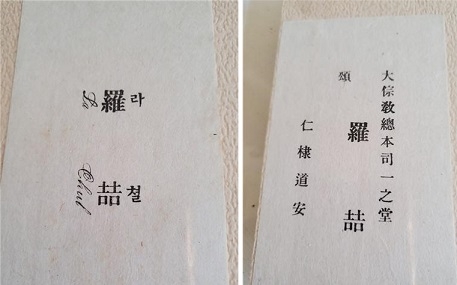 라 철
羅 喆
La Chul
大倧敎總本司一之堂
羅 喆
頌
仁棣道安